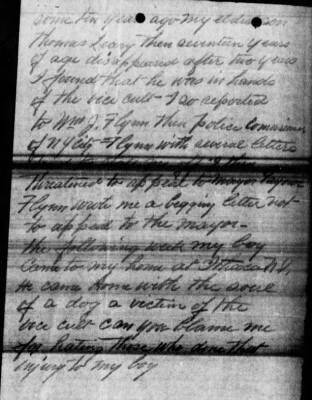 some ten years ago my eldest son
Thomas Leary then seventeen years
of age disappeared after two years
I found that he was in hands
of the vice cult - I so reported
to Wm J. Flynn then police commissioner
of NY City - Flynn with several letters
threatened to appeal to Mayor
Flynn wrote me a begging letter not
to appeal to the mayor -
the following week my boy
came to my home at Ithaca N.Y.
He came home with the soul
of a dog a victim of the
vice cult can you blame me
for hating those who done that
injury to my boy